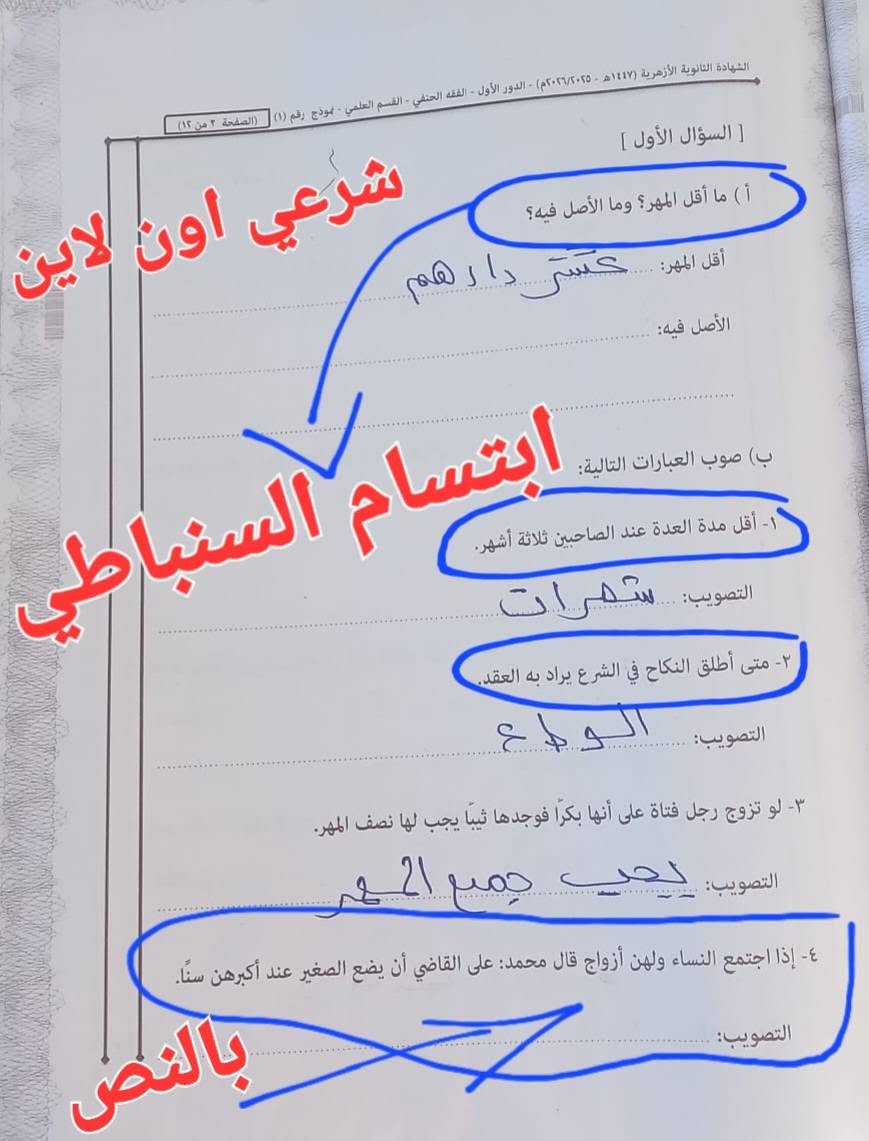 الشهادة الثانوية الأزهرية (١٤٤٧هـ - ٢٠٢٦/٢٠٢٥م) - الدور الأول - الفقه الحنفي - القسم العلمي - نموذج رقم (١) (الصفحة ٢ من ١٢)
[ السؤال الأول ]
شرعي اون لاين
أ ) ما أقل المهر؟ وما الأصل فيه؟
أقل المهر: عشر دارهم
الأصل فيه:
ابتسام السنباطي
ب) صوب العبارات التالية:
١- أقل مدة العدة عند الصاحبين ثلاثة أشهر.
التصويب: شهرات
٢- متى أطلق النكاح في الشرع يراد به العقد.
التصويب: الوطء
٣- لو تزوج رجل فتاة على أنها بكرًا فوجدها ثيبًا يجب لها نصف المهر.
التصويب: يجب جميع المهر
٤- إذا اجتمع النساء ولهن أزواج قال محمد: على القاضي أن يضع الصغير عند أكبرهن سنًا.
التصويب:
بالنص